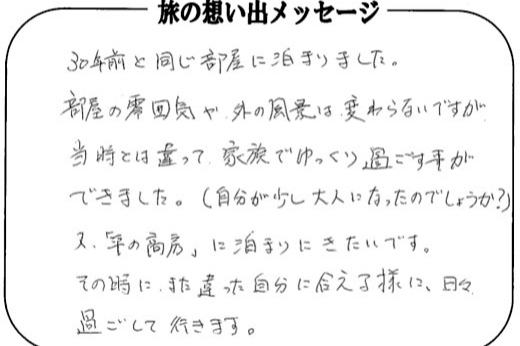 旅の想い出メッセージ
30年前と同じ部屋に泊まりました。
部屋の雰囲気や、外の風景は、変わらないですが
当時とは違って、家族でゆっくり過ごす事が
できました。(自分が少し大人になったのでしょうか?)
又、「年の商店」に泊まりにきたいです。
その時に、また違った自分に合える様に、日々
過ごして行きます。